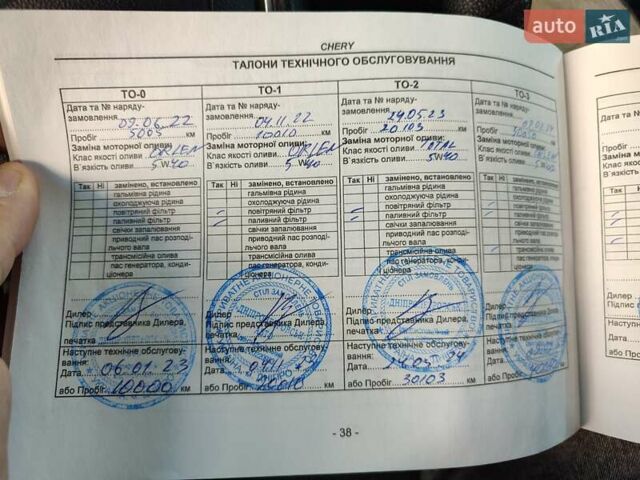 auto RIA.com
CHERY
ТАЛОНИ ТЕХНІЧНОГО ОБСЛУГОВУВАННЯ
ТО-0
Дата та № наряду-
замовлення 09.06.22
Пробіг 5003 км
Заміна моторної оливи:
Клас якості оливи ORLEN
В`язкість оливи 5W40
Так Ні замінено, встановлено
гальмівна рідина
охолоджуюча рідина
повітряний фільтр
паливний фільтр
свічки запалювання
приводний пас розподі-
льчого вала
трансмісійна олива
пас генератора, конди-
ціонера
Дилер
Підпис представника Дилера,
печатка
Наступне технічне обслугову-
вання:
Дата 06.01.23
або Пробіг 10000 км
ТО-1
Дата та № наряду-
замовлення 04.11.22
Пробіг 10010 км
Заміна моторної оливи:
Клас якості оливи ORLEN
В`язкість оливи 5W40
Так Ні замінено, встановлено
гальмівна рідина
охолоджуюча рідина
повітряний фільтр
паливний фільтр
свічки запалювання
приводний пас розподі-
льчого вала
трансмісійна олива
пас генератора, конди-
ціонера
Дилер
Підпис представника Дилера,
печатка
Наступне технічне обслугову-
вання:
Дата
або Пробіг км
ТО-2
Дата та № наряду-
замовлення 24.05.23
Пробіг 20103 км
Заміна моторної оливи:
Клас якості оливи TOTAL
В`язкість оливи 5W40
Так Ні замінено, встановлено
гальмівна рідина
охолоджуюча рідина
повітряний фільтр
паливний фільтр
свічки запалювання
приводний пас розподі-
льчого вала
трансмісійна олива
пас генератора, конди-
ціонера
Дилер
Підпис представника Дилера,
печатка
Наступне технічне обслугову-
вання:
Дата 24.05.24
або Пробіг 30103 км
ТО-3
Дата та № наряду-
замовлення
Пробіг км
Заміна моторної оливи:
Клас якості оливи
В`язкість оливи 5W40
Так Ні замінено, встановлено
гальмівна рідина
охолоджуюча рідина
повітряний фільтр
паливний фільтр
свічки запалювання
приводний пас розподі-
льчого вала
трансмісійна олива
пас генератора, конди-
ціонера
Дилер
Підпис представника Дилера,
печатка
Наступне технічне обслугову-
вання:
Дата
або Пробіг км
- 38 -